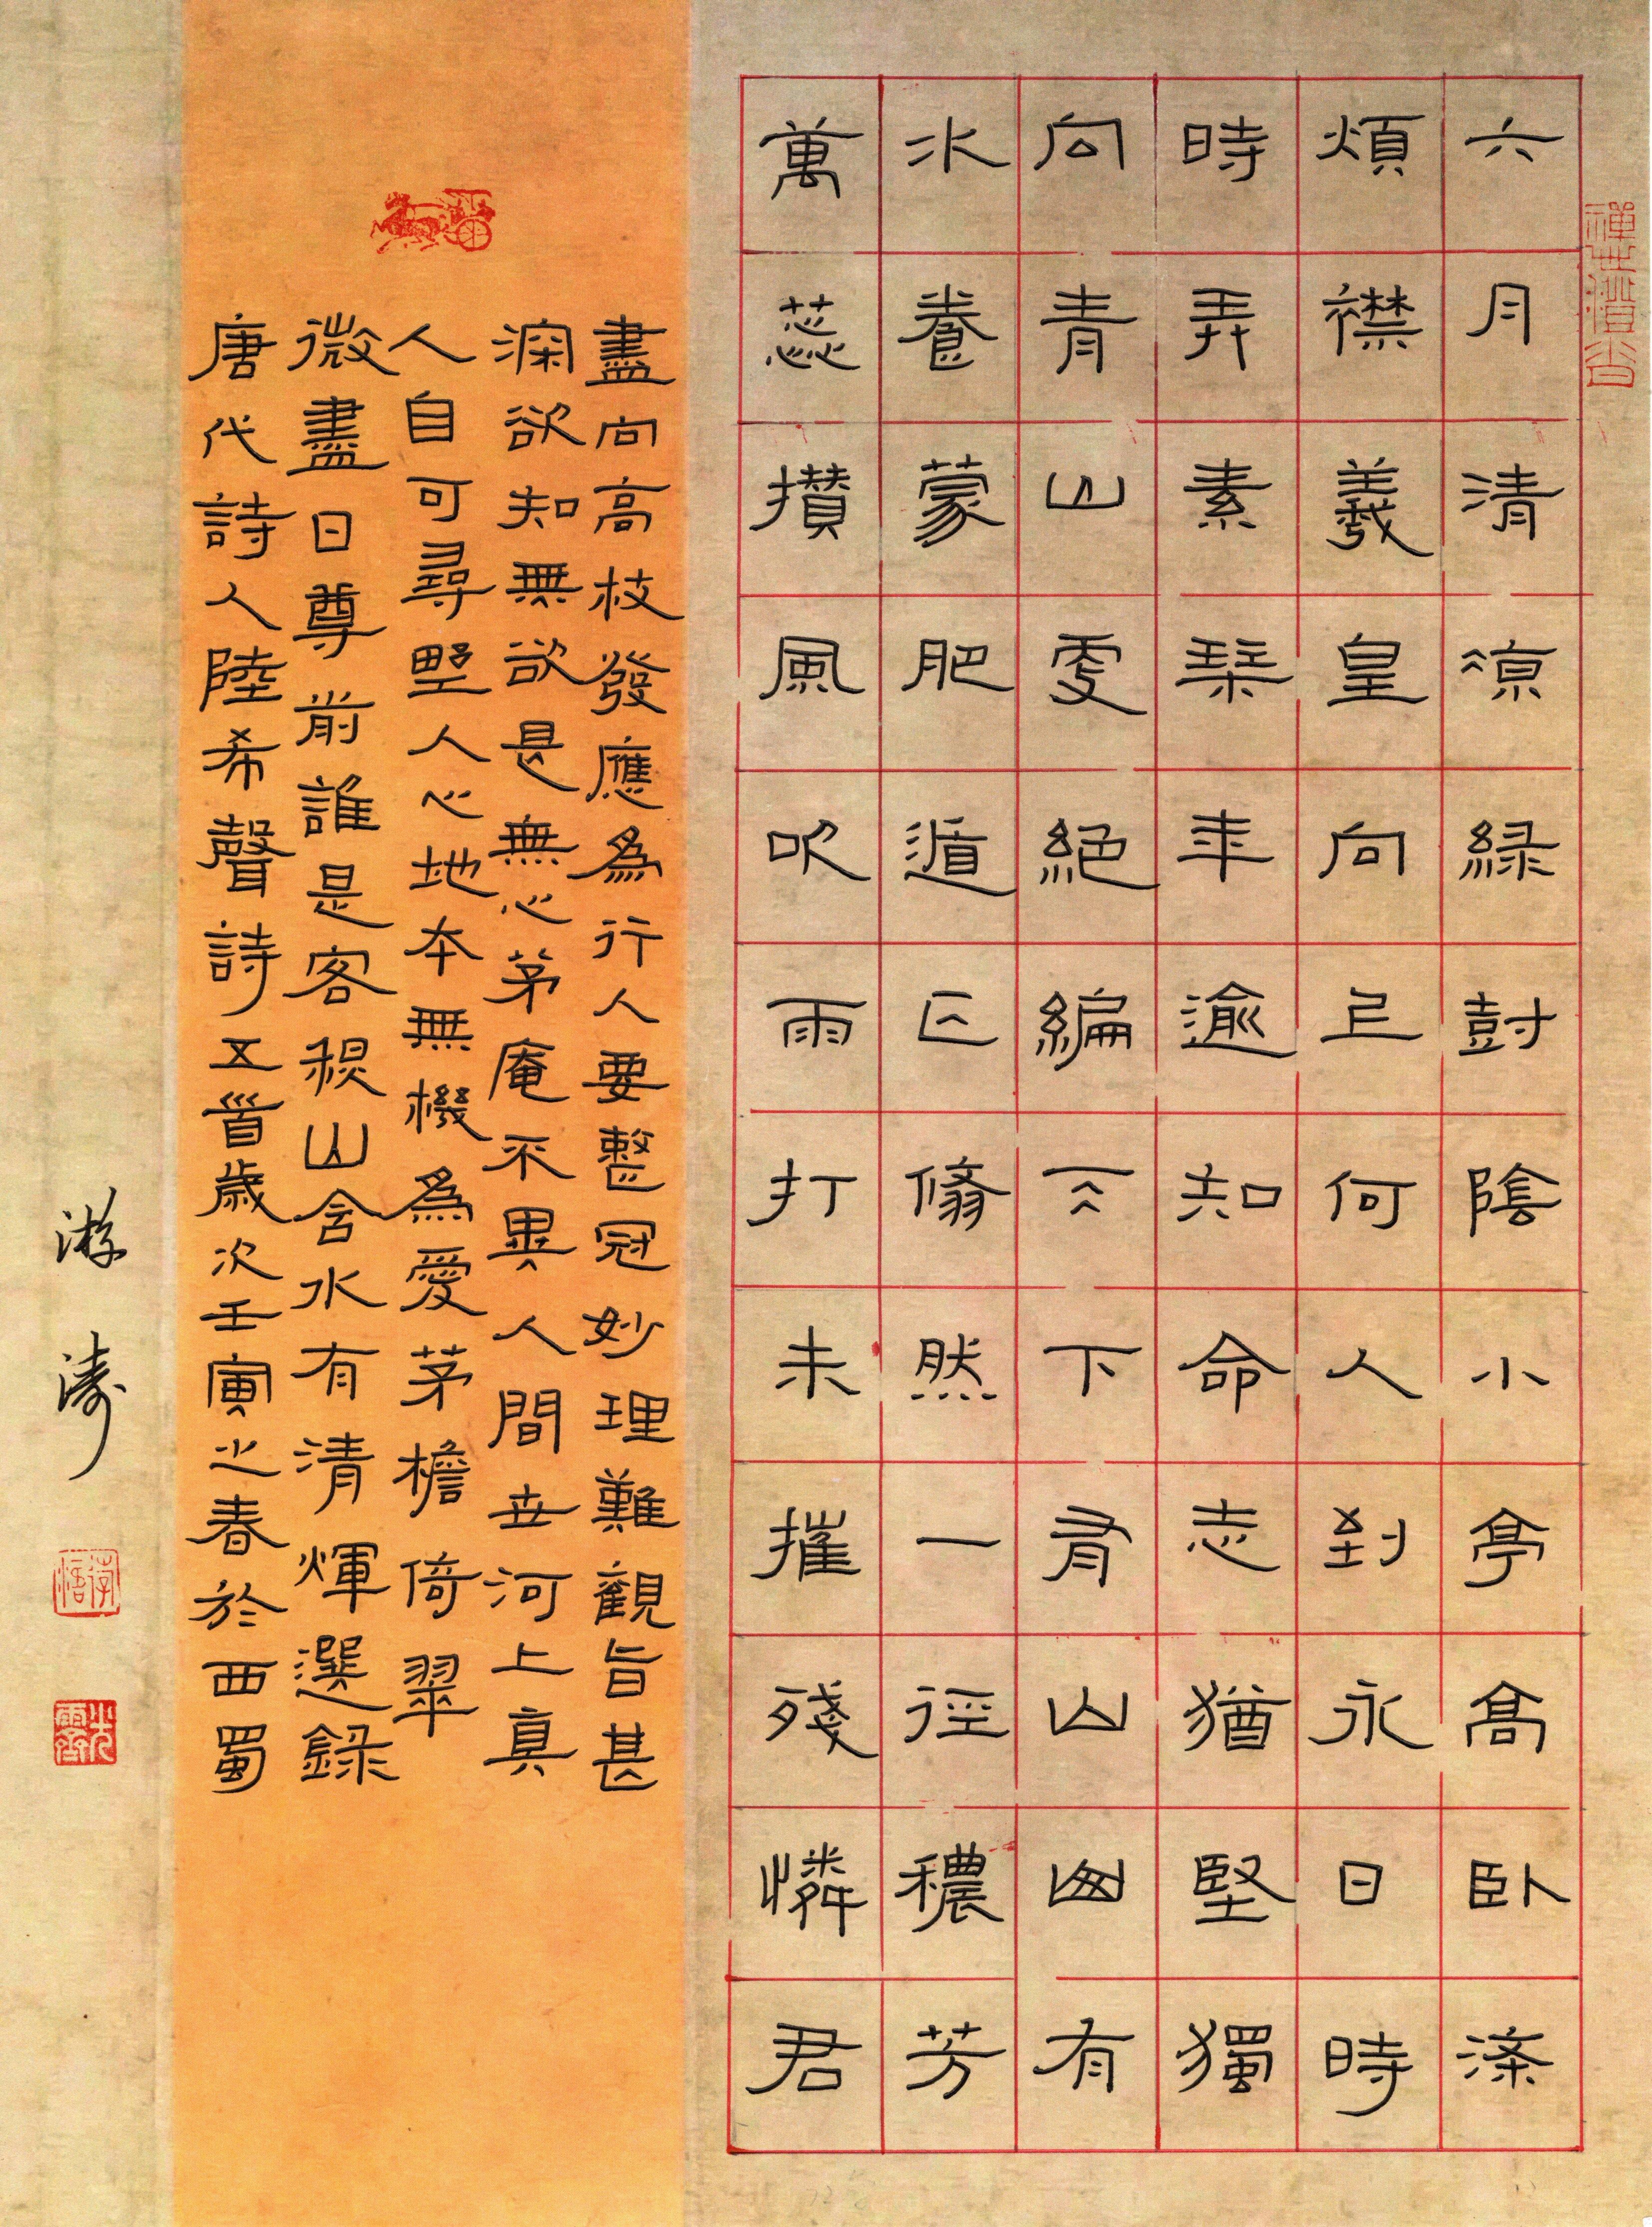 六月清涼緑尌陰小亭高臥滌
煩襟羲皇向上何人到永日時
時弄素琴年逾知命志猶堅獨
向青山更絕編天下有山山有
水養蒙肥遁正翛然一徑穠芳
萬蕊攢風吹雨打未摧殘憐君
盡向高枝發應為行人要整冠妙理難觀旨甚
深欲知無欲是無心茅庵不異人間世河上真
人自可尋野人心地本無機為愛茅檐倚翠
微盡日尊前誰是客秋山含水有清輝選錄
唐代詩人陸希聲詩五首歲次壬寅之春於西蜀
游濤